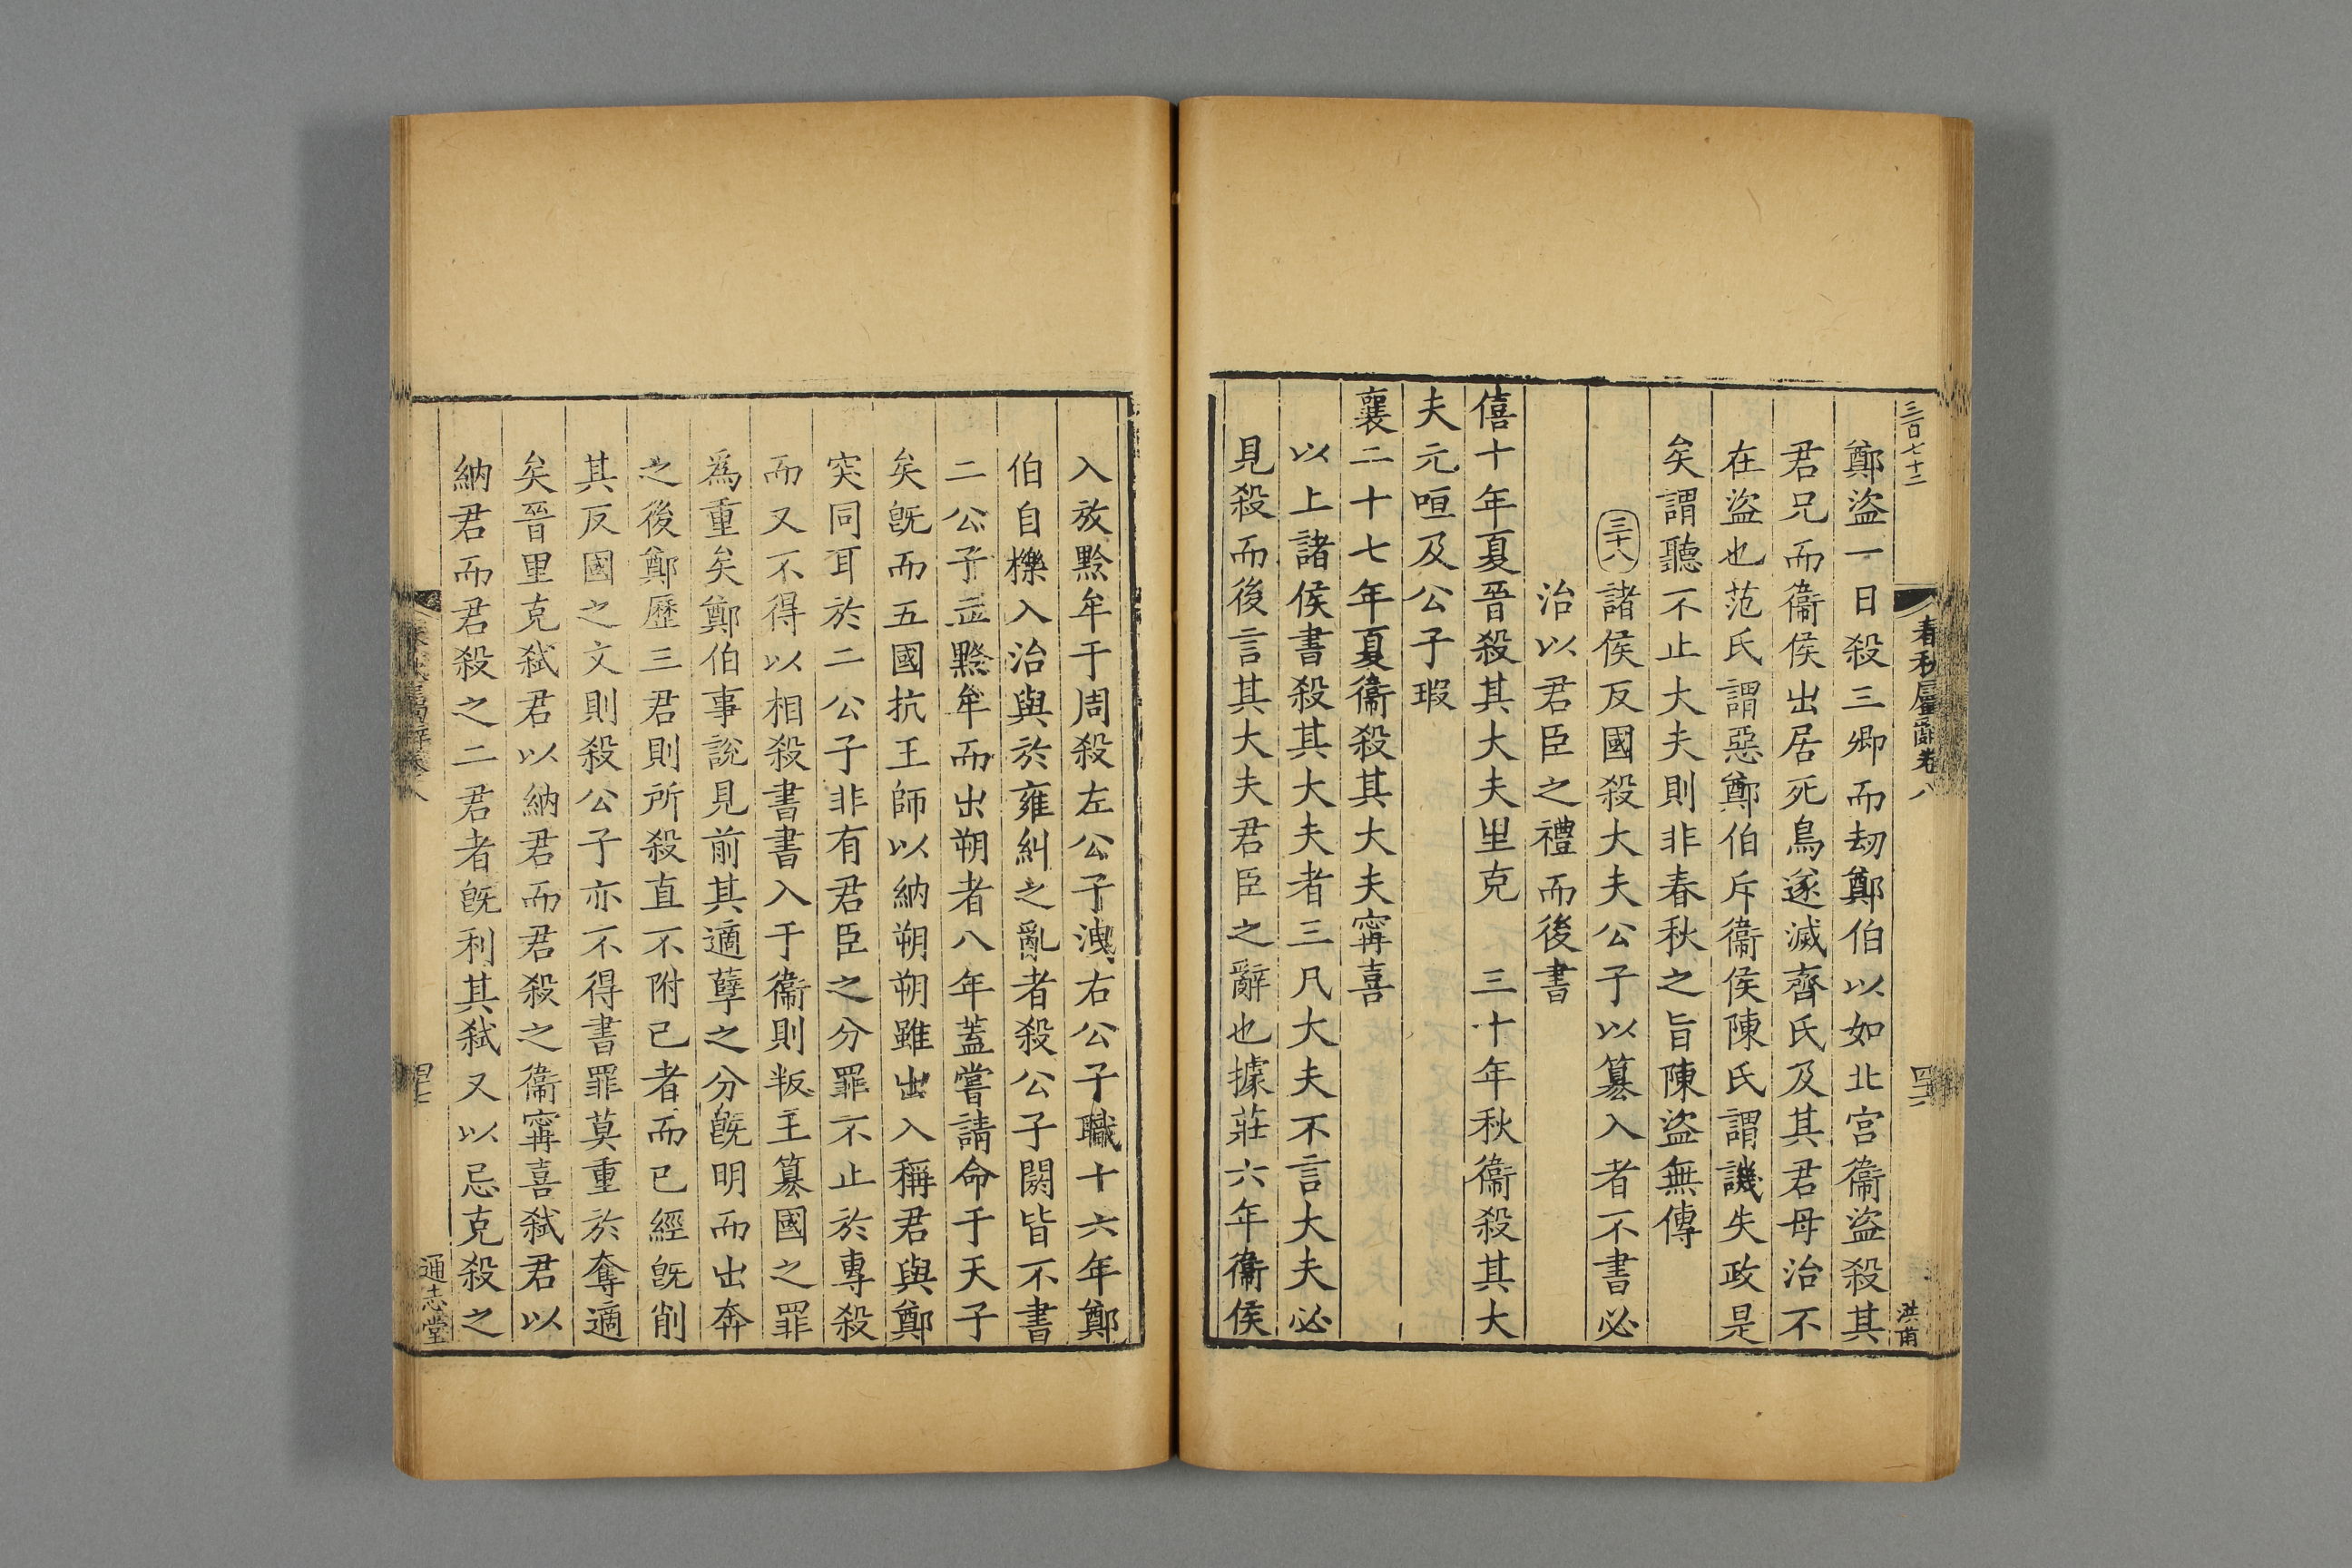 三百七十二
春秋屬辭卷八
四六
洪甫
鄭盜一日殺三卿而刼鄭伯以如北宫衞盜殺其
君兄而衞侯出居死鳥遂滅齊氏及其君母治不
在盜也范氏謂惡鄭伯斥衞侯陳氏謂譏失政是
矣謂聽不止大夫則非春秋之旨陳盜無傳
三十八諸侯反國殺大夫公子以簒入者不書必
治以君臣之禮而後書
僖十年夏晉殺其大夫里克 三十年秋衞殺其大
夫元咺及公子瑕
襄二十七年夏衞殺其大夫甯喜
以上諸侯書殺其大夫者三凡大夫不言大夫必
見殺而後言其大夫君臣之辭也據莊六年衞侯
入放黔牟于周殺左公子洩右公子職十六年鄭
伯自櫟入治與於雍糾之亂者殺公子閼皆不書
二公子立黔牟而出朔者八年蓋嘗請命于天子
矣旣而五國抗王師以納朔朔雖出入稱君與鄭
突同耳於二公子非有君臣之分罪不止於專殺
而又不得以相殺書書入于衞則叛王簒國之罪
爲重矣鄭伯事說見前其適孽之分旣明而出奔
之後鄭歷三君則所殺直不附己者而已經旣削
其反國之文則殺公子亦不得書罪莫重於奪適
矣晉里克弑君以納君而君殺之衞甯喜弑君以
納君而君殺之二君者旣利其弑又以忌克殺之
四七
通志堂